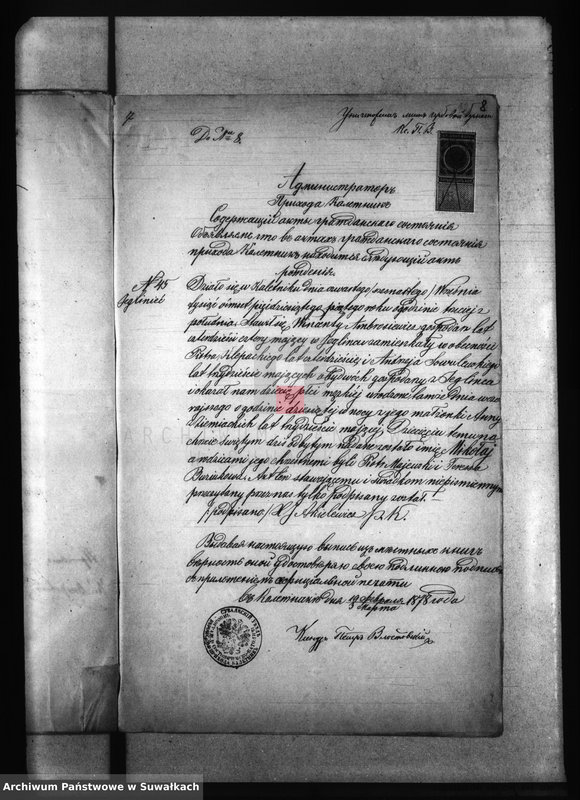 8
До № 8.
Администраторъ
Прихода Калетникъ
Содержащій акты гражданскаго состоянія
Объявляю что въ актахъ гражданскаго состоянія
прихода Калетникъ находится слѣдующій актъ
рожденія.
№ 45
Działo się w Kaletniku dnia czwartego /szesnastego/ Września
tysiąc ośmset pięćdziesiątego piątego roku o godzinie trzeciej z
południa. Stawił się Wincenty Ambrosiewicz gospodarz lat
czterdzieści cztery mający w Jeglińcu zamieszkały w obecności
Piotra lat czterdzieści i Andrzeja
lat trzydzieście mających obydwóch gospodarzy z Jeglińca
i okazał nam dziecię płci męzkiej urodzone tamże dnia wczo-
rajszego o godzinie drugiej w nocy z jego małżonki Anny
lat trzydzieście mającej. Dziecięciu temu na
chrzcie świętym dziś odbytym nadane zostało imię Mikołaj
a rodzicami jego chrzestnemi byli Piotr Majewski i
Akt ten stawającemu i świadkom niepiśmiennym
przeczytany przez nas tylko podpisany został.
/podpisano/ X J Akielewicz
Выдавая настоящую выпись изъ мѣстныхъ книгъ
вѣрность оной удостовѣряю своею подлинною подписью
съ приложеніемъ официальной печати
въ Калетникѣ дня 19 Февраля 3 Марта 1878 года
Ксендзъ Петръ
Archiwum Państwowe w Suwałkach